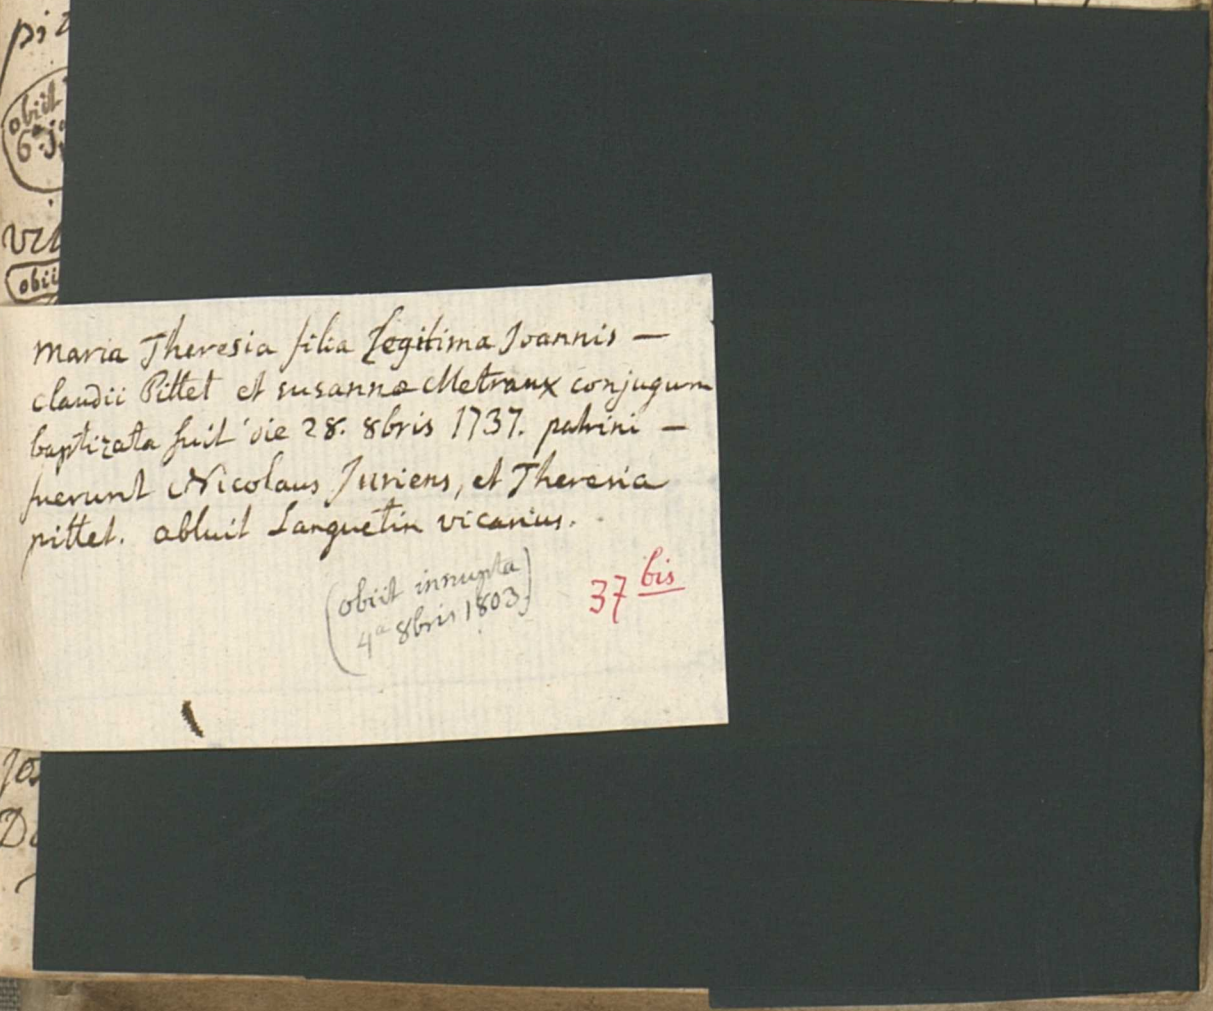 pi
obiit
6a
obii
Maria Theresia filia Legitima Joannis —
claudii Pittet et susannæ Metraux conjugum
baptizata fuit die 28. 8bris 1737. patrini —
fuerunt Nicolaus Juriens, et Theresia
pittet. abluit Languetin vicarius.
(obiit innupta
4a 8bris 1803)
37 bis
Jos
De